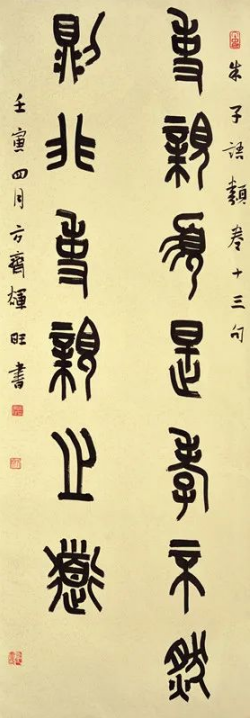 朱子語類卷十三句
事親須是孝不然
則非事親之道
壬寅四月方齊輝旺書